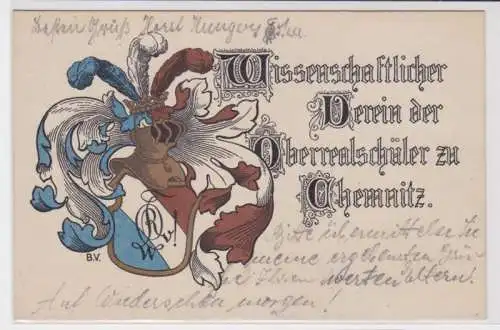 Besten Gruß Horst
Wissenschaftlicher
Verein der
Oberrealschüler zu
Chemnitz.
B.V.
Bitte übermitteln Sie
meine ergebensten Grü-
ße Ihren werten Eltern.
Auf Wiedersehen morgen!